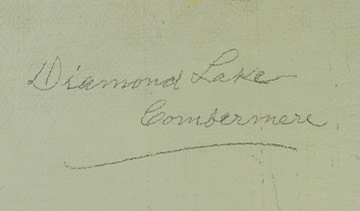 Diamond Lake
Combermere